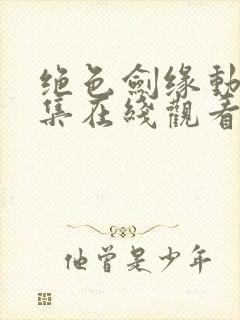 绝色劍缘動
集在綫觀看
他曾是少年